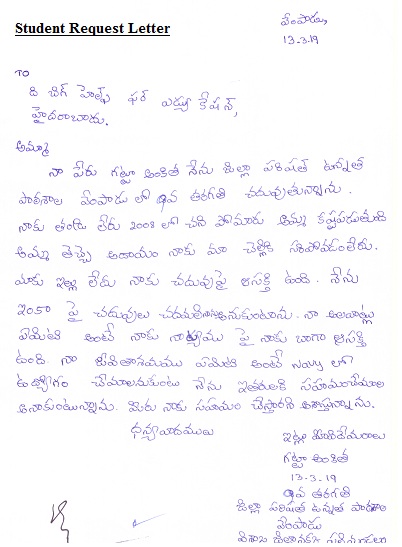 Student Request Letter
వేంపాడు,
13-3-19
TO
ది చిగ్ హెల్ప్ ఫర్ ఎడ్యు కేషన్,
హైదరాబాదు.
అమ్మా
నా పేరు గట్టూ అంకిత నేను జిల్లా పరిషత్ ఉన్నత
పాఠశాల వేంపాడు లో 9వ తరగతి చదువుతున్నాను.
నాకు తండ్రి లేరు 2008 లో చని పోయారు అమ్మ కష్టపడుతుంది
అమ్మ తెచ్చే ఆదాయం నాకు మా చెల్లికి సరిపోవడంలేదు.
మాకు ఇల్లు లేదు నాకు చదువుపై ఆసక్తి ఉంది. నేను
పై చదువులు నా అలవాట్లు
ఏమిటి అంటే నాకు నాట్యము పై నాకు బాగా ఆసక్తి
ఉంది. నా జీవితాశయము ఏమిటి అంటే Navy లో
ఉద్యోగం చేయాలనుకుంటు నేను ఇతరులకి సహయంచేయాల
అనుకుంటున్నాను. మీరు నాకు సహయం చేస్తారని ఆశిస్తున్నాను.
ధన్యవాదములు
ఇట్లు
గట్టూ అంకిత
13-3-19
9వ తరగతి
జిల్లా పరిషత ఉన్నత పాఠశాల
వేంపాడు